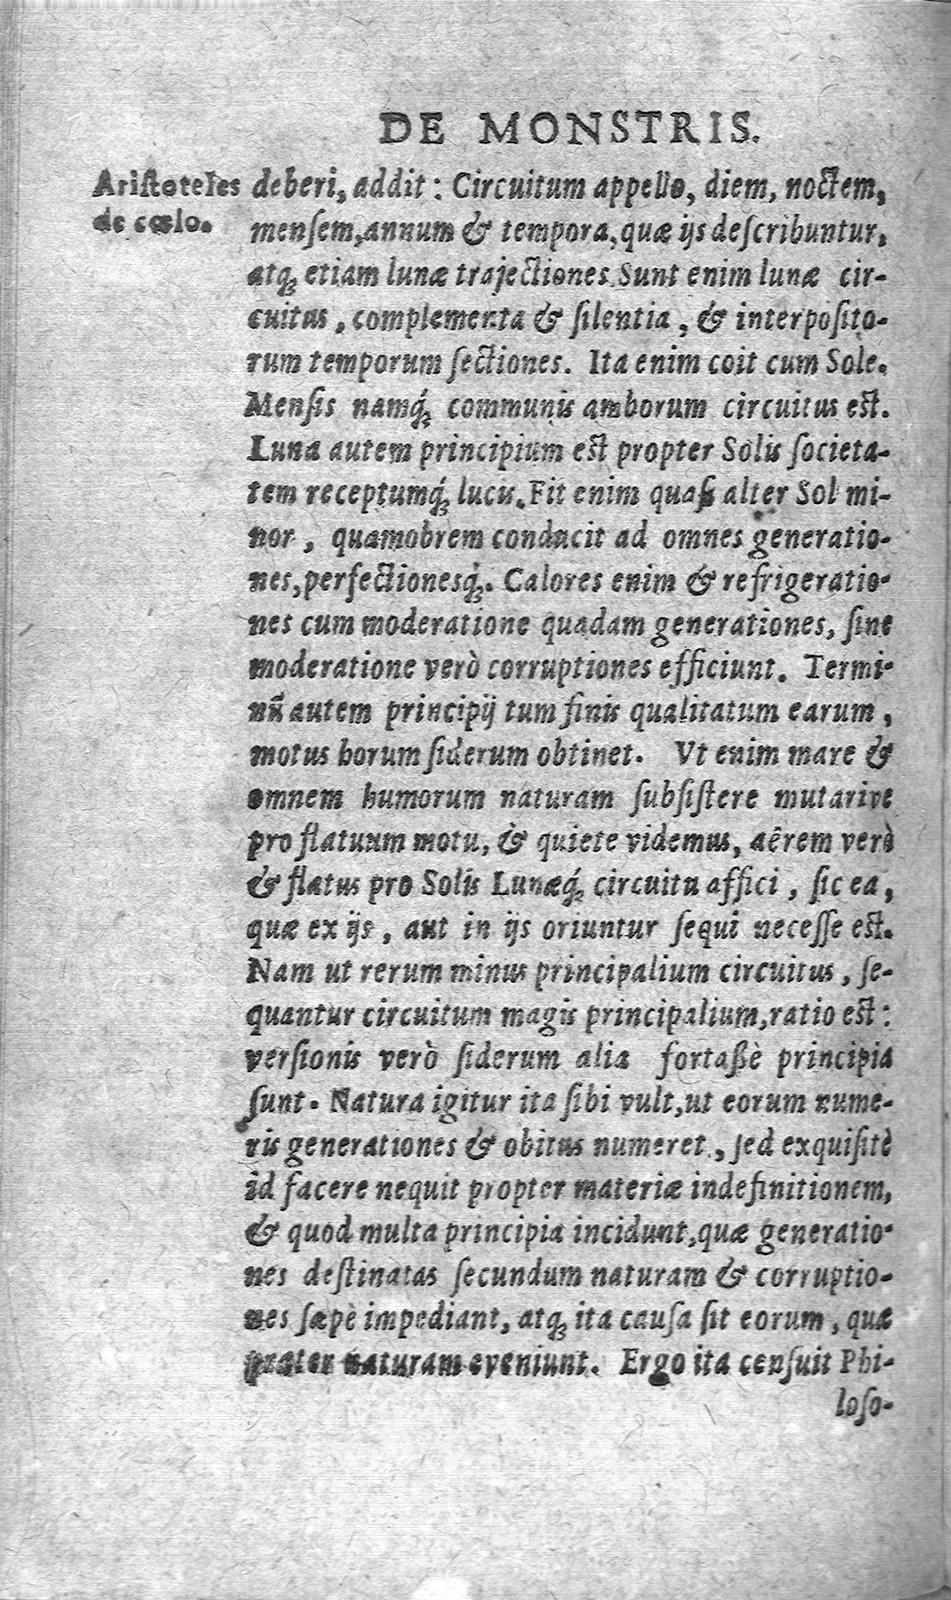 DE MONSTRIS.
Ariſtoteles
de cœlo.
deberi, addit : Circuitum appello, diem, noctem,
menſem, annum & tempora, quæ ijs deſcribuntur,
atq; etiam lunæ trajectiones. Sunt enim lunæ cir-
cuitus, complementa & ſilentia, & interpoſito-
rum temporum ſectiones. Ita enim coit cum Sole.
Menſis namq́; communis amborum circuitus est.
Luna autem principium est propter Solis ſocieta-
tem receptumq́; lucis. Fit enim quaſi alter Sol mi-
nor, quamobrem conducit ad omnes generatio-
nes, perfectionesq́;. Calores enim & refrigeratio-
nes cum moderatione quadam generationes, ſine
moderatione verò corruptiones efficiunt. Termi-
nũ autem principij tum finis qualitatum earum,
motus horum ſiderum obtinet. Vt enim mare &
omnem humorum naturam ſubſiſtere mutarive
pro flatuum motu, & quiete videmus, aêrem verò
& flatus pro Solis Lunæq́; circuitu affici, ſic ea,
quæ ex ijs, aut in ijs oriuntur ſequi neceſſe est.
Nam ut rerum minus principalium circuitus, ſe-
quantur circuitum magis principalium, ratio est:
verſionis verò ſiderum alia fortaßè principia
ſunt. Natura igitur ita ſibi vult, ut eorum nume-
ris generationes & obitus numeret, ſed exquiſitè
id facere nequit propter materiæ indefinitionem,
& quod multa principia incidunt, quæ generatio-
nes deſtinatas ſecundum naturam & corruptio-
nes ſæpè impediant, atq; ita cauſa ſit eorum, quæ
præter naturam eveniunt. Ergo ita cenſuit Phi-
loſo-